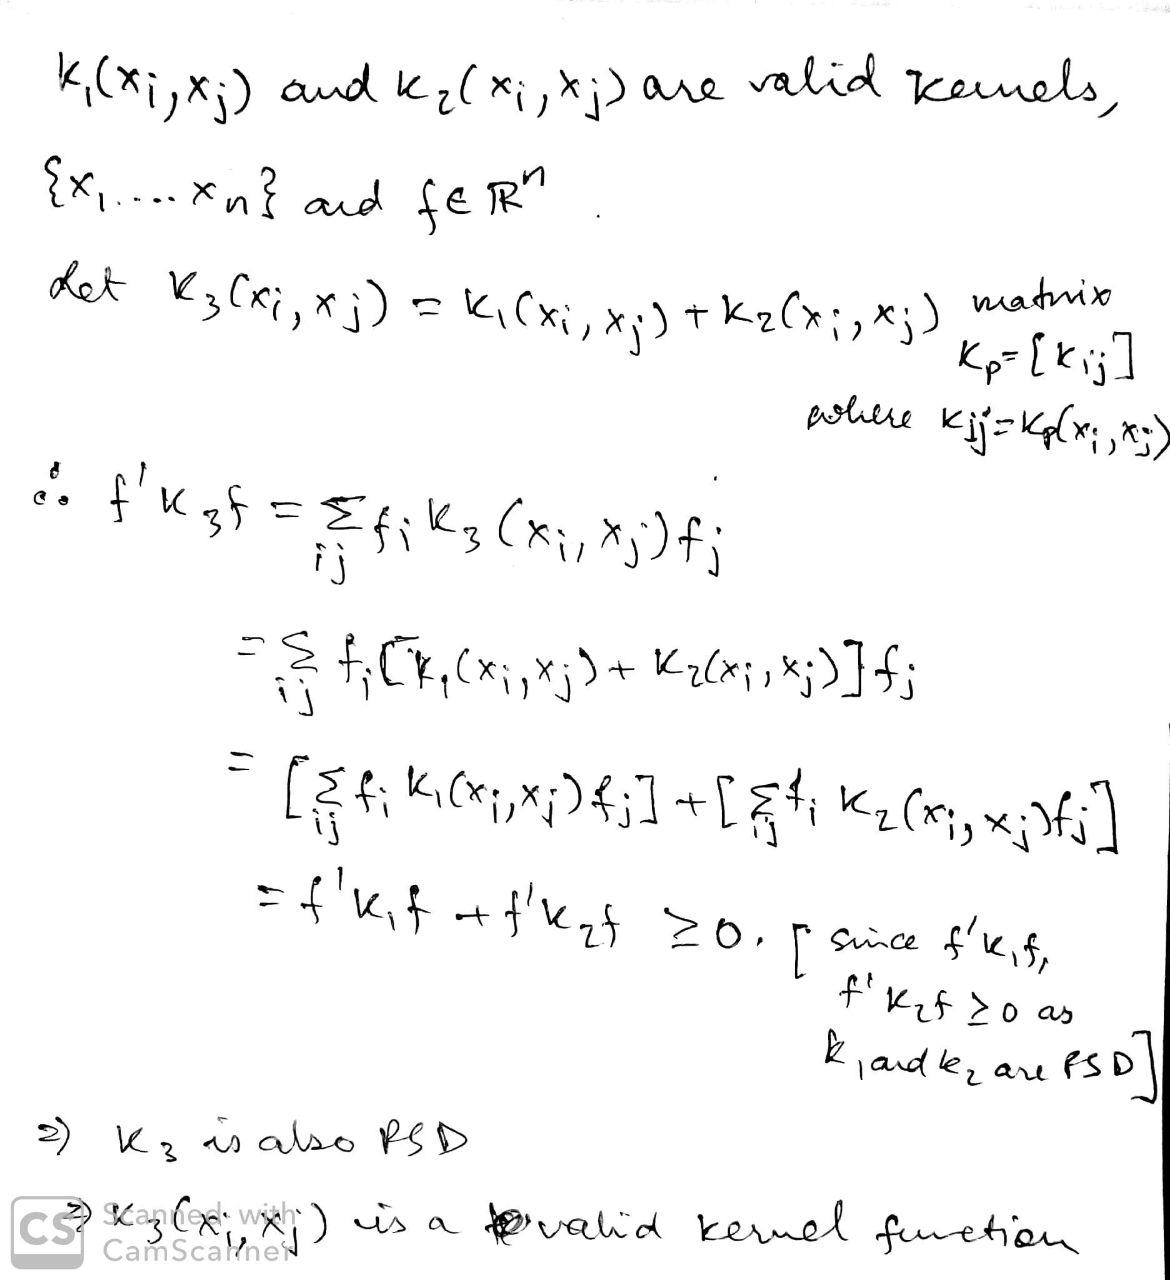 K₁(xᵢ,xⱼ) and K₂(xᵢ,xⱼ) are valid kernels,
{x₁.... xₙ} and f ∈ ℝⁿ.
Let K₃(xᵢ,xⱼ) = K₁(xᵢ,xⱼ) + K₂(xᵢ,xⱼ) matrix
Kₚ=[Kᵢⱼ]
where Kᵢⱼ=Kₚ(xᵢ,xⱼ)
∴ f'K₃f = Σᵢⱼ fᵢ K₃(xᵢ,xⱼ)fⱼ
= Σᵢⱼ fᵢ[K₁(xᵢ,xⱼ) + K₂(xᵢ,xⱼ)]fⱼ
= [Σᵢⱼ fᵢ K₁(xᵢ,xⱼ)fⱼ] + [Σᵢⱼ fᵢ K₂(xᵢ,xⱼ)fⱼ]
= f'K₁f + f'K₂f ≥ 0. [since f'K₁f,
f'K₂f ≥ 0 as
K₁ and K₂ are PSD]
⇒ K₃ is also PSD
⇒ K₃(xᵢ,xⱼ) is a valid kernel function
CS Scanned with
CamScanner